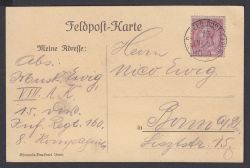 Feldpost-Karte
Meine Adresse:
Abs:
Ernst Ewig
VIII. A.K.
15. Div.
Inf. Regt. 160.
8. Kompagnie
Herrn
Nico Ewig
Bonn a/Rh
Lisztstr. 15